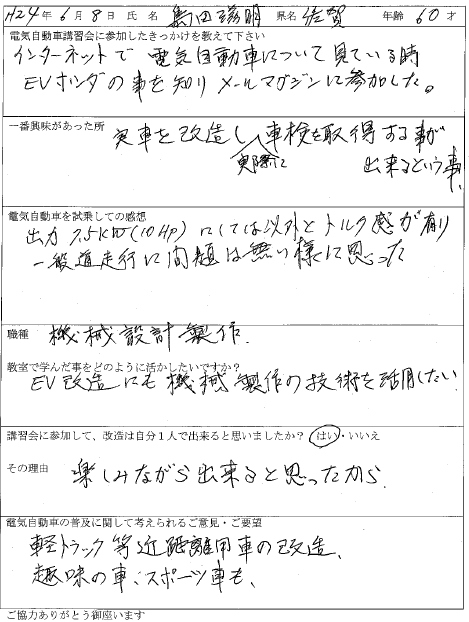 H24年6月8日 氏名 島田滋明 県名 佐賀 年齢 60才
電気自動車講習会に参加したきっかけを教えて下さい
インターネットで 電気自動車について見ている時
EVホンダの事を知り メールマガジンに参加した。
一番興味があった所
実車を改造し 実際に 車検を取得する事が
出来るという事、
電気自動車を試乗しての感想
出力 7.5kW(10Hp) にしては以外とトルク感が有り
一般道走行に問題は無い様に思った
職種 機械設計製作.
教室で学んだ事をどのように活かしたいですか?
EV改造にも機械製作の技術を活用したい
講習会に参加して、改造は自分1人で出来ると思いましたか? はい・いいえ
その理由 楽しみながら出来ると思ったから
電気自動車の普及に関して考えられるご意見・ご要望
軽トラック等近距離用車の改造、
趣味の車、スポーツ車も、
ご協力ありがとう御座います